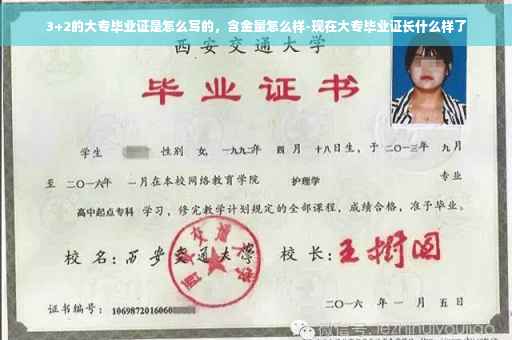 3+2的大专毕业证是怎么写的，含金量怎么样-现在大专毕业证长什么样了
西安交通大学
毕业证书
学生 性别 女，一九九二年 四月 十八日生，于二〇一三年 九月
至 二〇一六年 一月在本校网络教育学院 护理学 专业
高中起点专科 学习，修完教学计划规定的全部课程，成绩合格，准予毕业。
校名：西安交通大学 校长：王树国
证书编号：1069872016060
二〇一六年一月五日
微信号: jiezhihuiyoujiao